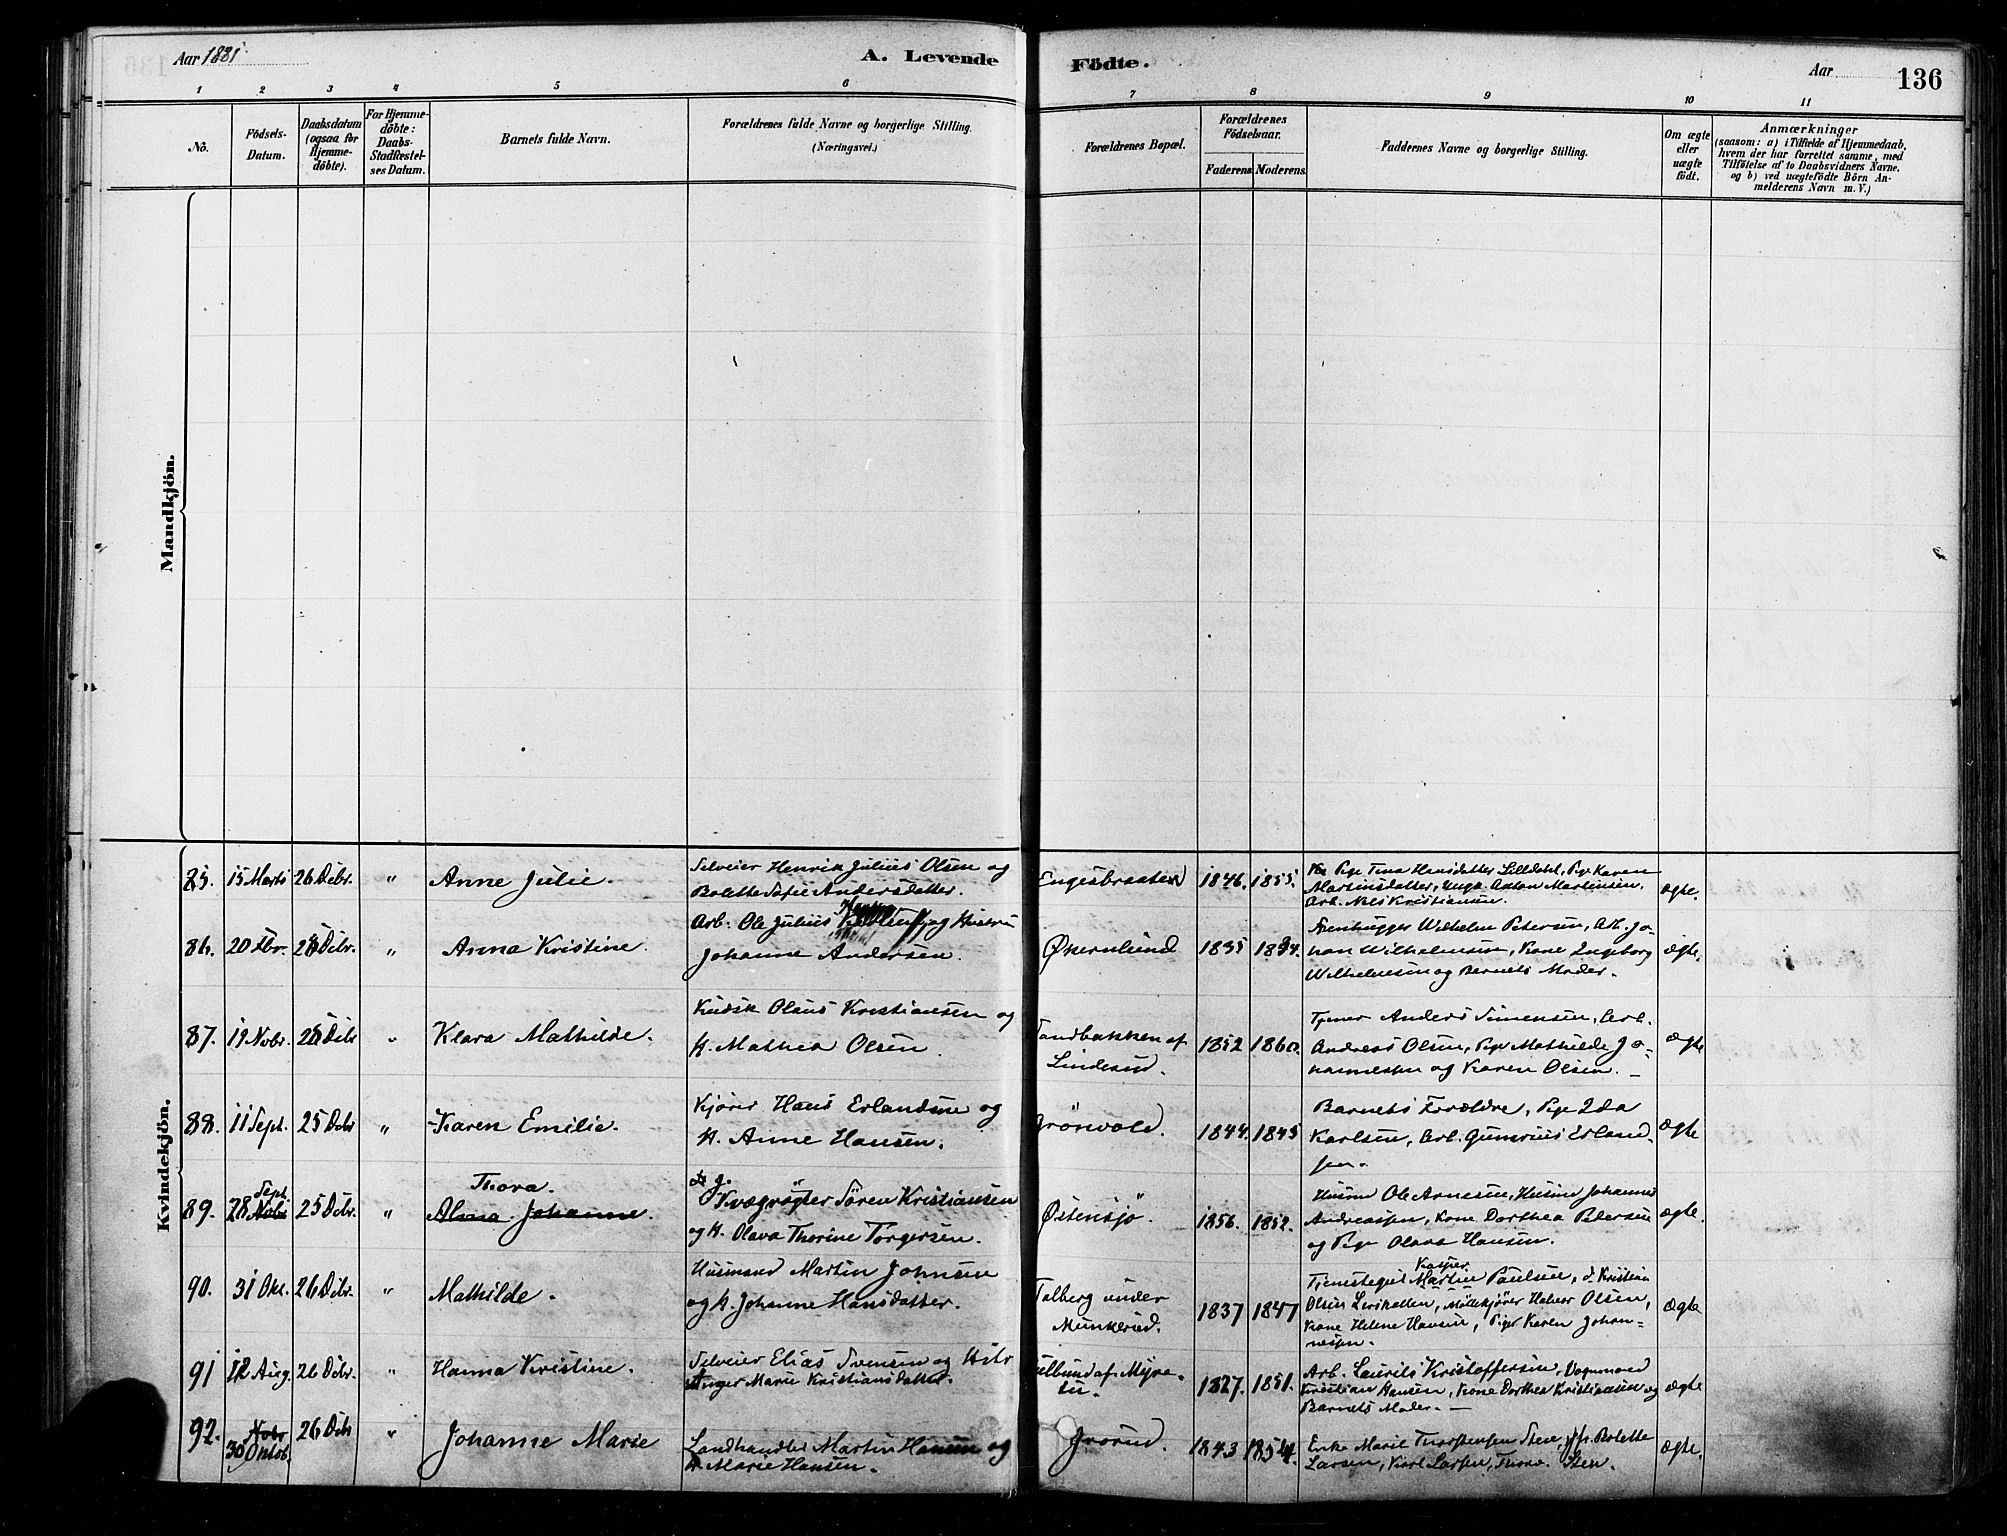 Aar 1881.
A. Levende
Födte.
Aar
136
1
2
3
4
5
6
7
8
9
10
11
No.
Födsels-
Datum.
Daabsdatum
(ogsaa for
Hjemme-
döbte).
For Hjemme-
döbte:
Daabs-
Stadfæstel-
ses Datum.
Barnets fulde Navn.
Forældrenes fulde Navne og borgerlige Stilling.
(Næringsvei.)
Forældrenes Bopæl.
Forældrenes
Födselsaar.
Faderens.
Moderens.
Faddernes Navne og borgerlige Stilling.
Om ægte
eller
uægte
födt.
Anmærkninger
(saasom: a) i Tilfælde af Hjemmedaab,
hvem der har forrettet samme, med
Tilföielse af to Daabsvidners Navne.
og b) ved uægtefödte Börn An-
melderens Navn m. V.)
Mandkjön.
Kvindekjön.
85. 15 Marts 26 Debr. " Anne Julie.
Henrik Julius Olsen og
Bolette Sofie Andersdatter.
1846. 1855.
Pige Tina Hansdatter Lilledal, Pige Karen
Martinsdatter, Unga. Anton Martinsen,
Arb. Nils Kristiansen.
ægte.
86. 20 Debr. " Anna Kristine.
Arb. Ole Julius og Hustru
Johanne Andersen.
Økernlund 1835
Wilhelm Petersen, Arb. Jo-
han Wilhelmsen, Kone Ingeborg
Wilhelmsen og Barnets Moder.
ægte.
87. 19 Novbr. Debr " Klara Mathilde.
Kudsk Olaus Kristiansen og
H. Mathea Olsen.
Sandbakken af
Linderud.
1852 1860.
Tjener Anders Simensen, Arb.
Andreas Olsen, Pige Mathilde Jo-
hannessen og Karen Olsen. —
ægte
88. 11 Sept. 25 Debr " Karen Emilie.
Kjører Hans Erlandsen og
H. Anne Hansen.
Grönvold. 1844. 1845
Barnets Forældre, Pige Ida
Karlsen, Arb. Gunerius Erland-
sen.
ægte
89. 28 Sept. Novbr 25 Debr. " Thora.
Alma Johanne.
Kvægrögter Søren Kristiansen
og H. Olava Thorine Torgersen.
Østensjö. 1856. 1852.
Husmd Ole Arnesen, Husmd Johannes
Andreassen, Kone Dorthea Petersen
og Pige Olava Hansen.
ægte.
90. 31 Okt. 26 Debr. " Mathilde.
Husmand Martin Johnsen
og H. Johanne Hansdatter.
Talberg under
Munkerud.
1837 1847
Kasper
Tjenestegut Martin Paulsen, d. Kristian
Olsen, Möllekjörer Halvor Olsen,
Kone Helene Hansen, Pige Karen Johan-
nesen.
ægte
91 12 Aug. 26 Debr. " Hanna Kristine.
Elias Svensen og Hstr
Inger Marie Kristiansdatter.
1827. 1851.
Arb. Laurits Kristoffersen, Vognmand
Kristian Hansen, Kone Dorthea Kristiansen og
Barnets Moder. —
ægte
92. Novbr
30 Oktob. 26 Debr " Johanne Marie
Landhandler Martin Hansen og
H. Marie Hansen.
Grorud. 1843 1854.
Enke Marie Thorstensen Steen, Jfr. Bolette
Larsen, Karl Larsen, Thorv. Sten.
ægte.